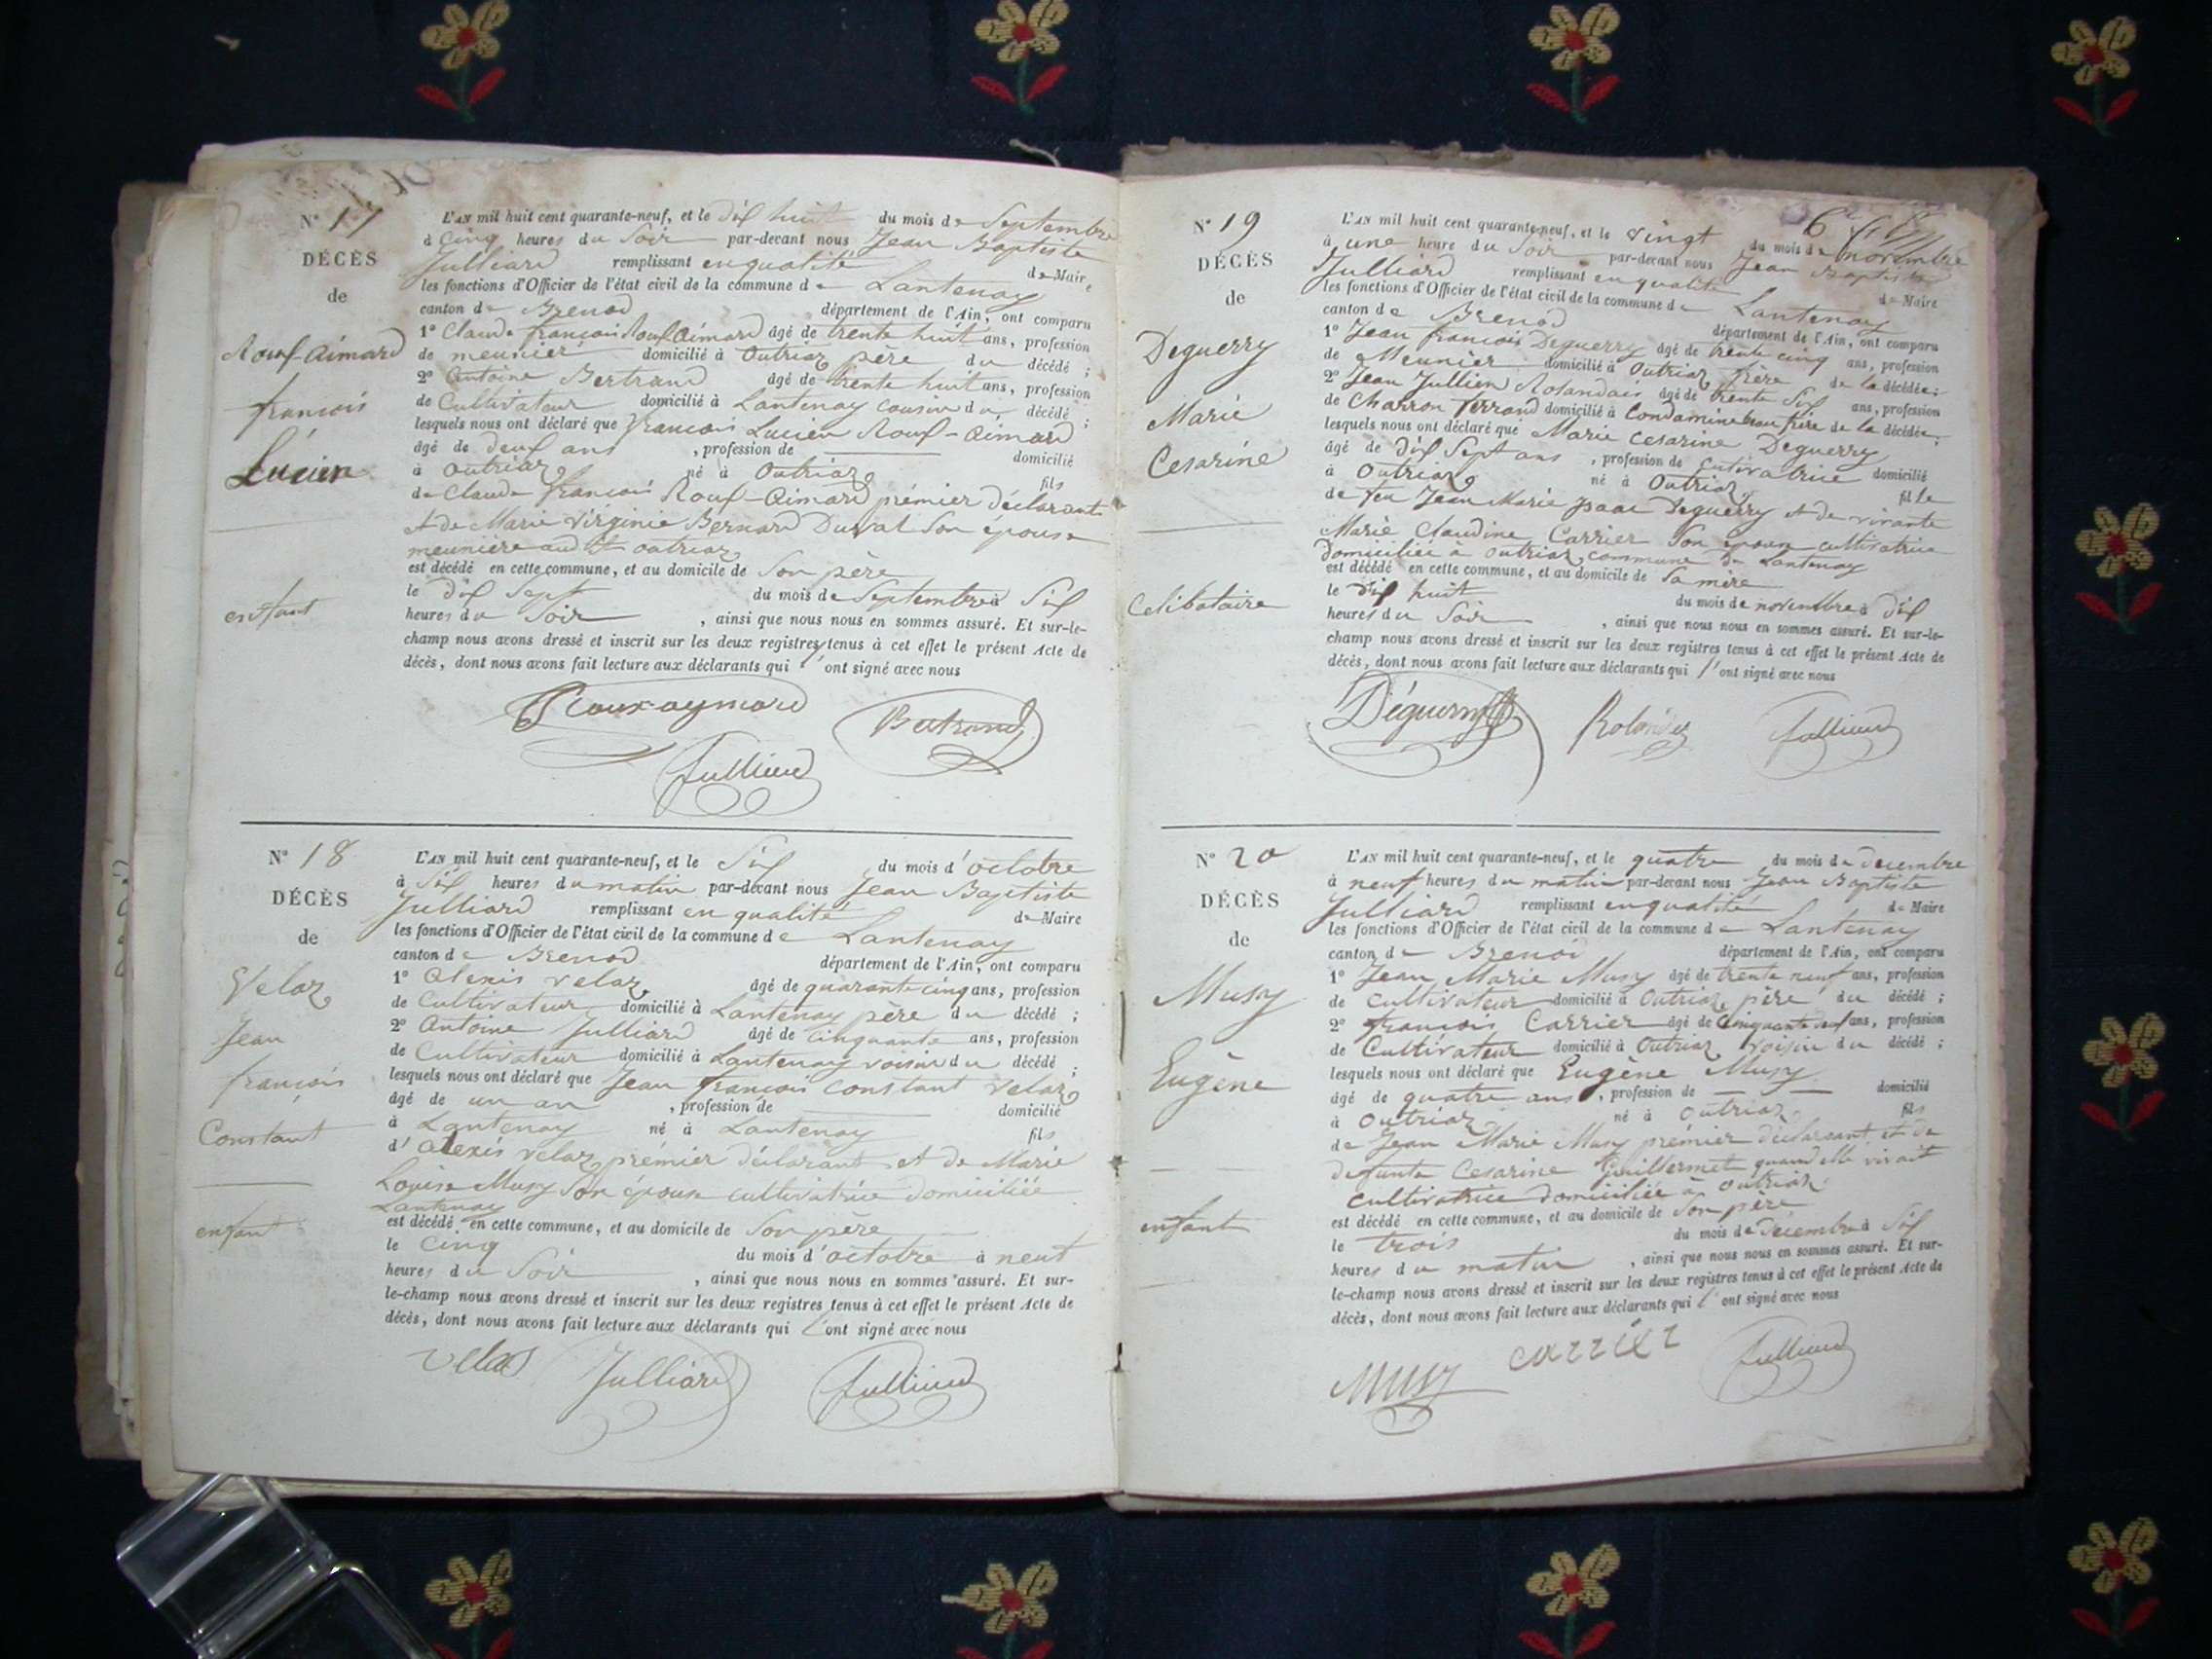 N° 17
DÉCÈS
de
Roux-Aimard
françois
Lucien
enfant
L'AN mil huit cent quarante-neuf, et le dix huit du mois de Septembre
à cinq heures du Soir par-devant nous Jean Baptiste
Julliard remplissant en qualité de Maire
les fonctions d'Officier de l'état civil de la commune de Lantenay
canton de Brenod département de l'Ain, ont comparu
1° Claude françois Roux Aimard âgé de trente huit ans, profession
de meunier domicilié à Outriaz père du décédé ;
2° Antoine Bertrand âgé de trente huit ans, profession
de Cultivateur domicilié à Lantenay cousin du décédé ;
lesquels nous ont déclaré que françois Lucien Roux-Aimard
âgé de deux ans , profession de domicilié
à Outriaz né à Outriaz fils
de Claude françois Roux-Aimard prémier déclarant
et de Marie Virginie Bernard Duvat Son épouse
meunière audit Outriaz
est décédé en cette commune, et au domicile de Son père
le dix Sept du mois de Septembre à Six
heures du Soir , ainsi que nous nous en sommes assuré. Et sur-le-
champ nous avons dressé et inscrit sur les deux registres tenus à cet effet le présent Acte de
décès, dont nous avons fait lecture aux déclarants qui l'ont signé avec nous
Rouxaymard Bertrand
Julliard
N° 18
DÉCÈS
de
Velaz
Jean
françois
Constant
enfant
L'AN mil huit cent quarante-neuf, et le Six du mois d'octobre
à Six heures du matin par-devant nous Jean Baptiste
Julliard remplissant en qualité de Maire
les fonctions d'Officier de l'état civil de la commune de Lantenay
canton de Brenod département de l'Ain, ont comparu
1° Alexis Velaz âgé de quarante cinq ans, profession
de Cultivateur domicilié à Lantenay père du décédé ;
2° Antoine Julliard âgé de cinquante ans, profession
de Cultivateur domicilié à Lantenay voisin du décédé ;
lesquels nous ont déclaré que Jean françois Constant Velaz
âgé de un an , profession de domicilié
à Lantenay né à Lantenay fils
d'Alexis Velaz prémier déclarant et de Marie
Louise Musy Son épouse cultivatrice domiciliée
Lantenay
est décédé en cette commune, et au domicile de Son père
le cinq du mois d'octobre à neuf
heures du Soir , ainsi que nous nous en sommes assuré. Et sur-
le-champ nous avons dressé et inscrit sur les deux registres tenus à cet effet le présent Acte de
décès, dont nous avons fait lecture aux déclarants qui l'ont signé avec nous
Velas Julliard Julliard
N° 19
DÉCÈS
de
Deguerry
Marie
Cesarine
Celibataire
L'AN mil huit cent quarante-neuf, et le vingt du mois de novembre
à une heure du Soir par-devant nous Jean Baptiste
Julliard remplissant en qualité de Maire
les fonctions d'Officier de l'état civil de la commune de Lantenay
canton de Brenod département de l'Ain, ont comparu
1° Jean françois Deguerry âgé de trente cinq ans, profession
de Meunier domicilié à Outriaz frère de la décédée ;
2° Jean Jullien Rolandais âgé de trente Six ans, profession
de Charron ferrand domicilié à Condamine beau frère de la décédée ;
lesquels nous ont déclaré que Marie Cesarine Deguerry
âgé de dix Sept ans , profession de cutivatrice domicilié
à Outriaz né à Outriaz fille
de feu Jean Marie Isaac Deguerry et de vivante
Marie Claudine Carrier Son épouse cultivatrice
domiciliée à Outriaz commune de Lantenay
est décédé en cette commune, et au domicile de Sa mère
le dix huit du mois de novembre à dix
heures du Soir , ainsi que nous nous en sommes assuré. Et sur-le-
champ nous avons dressé et inscrit sur les deux registres tenus à cet effet le présent Acte de
décès, dont nous avons fait lecture aux déclarants qui l'ont signé avec nous
Déguerry Rolandez Julliard
N° 20
DÉCÈS
de
Musy
Eugène
enfant
L'AN mil huit cent quarante-neuf, et le quatre du mois de decembre
à neuf heures du matin par-devant nous Jean Baptiste
Julliard remplissant en qualité de Maire
les fonctions d'Officier de l'état civil de la commune de Lantenay
canton de Brenod département de l'Ain, ont comparu
1° Jean Marie Musy âgé de trente neuf ans, profession
de cultivateur domicilié à Outriaz père du décédé ;
2° françois Carrier âgé de cinquante deux ans, profession
de Cultivateur domicilié à Outriaz voisin du décédé ;
lesquels nous ont déclaré que Eugène Musy
âgé de quatre ans , profession de domicilié
à Outriaz né à Outriaz fils
de Jean Marie Musy prémier déclarant et de
defunte Cesarine Guillermet quand elle vivait
cultivatrice domiciliée à Outriaz
est décédé en cette commune, et au domicile de Son père
le trois du mois de Decembre à Six
heures du matin , ainsi que nous nous en sommes assuré. Et sur-
le-champ nous avons dressé et inscrit sur les deux registres tenus à cet effet le présent Acte de
décès, dont nous avons fait lecture aux déclarants qui l'ont signé avec nous
Musy carrier Julliard